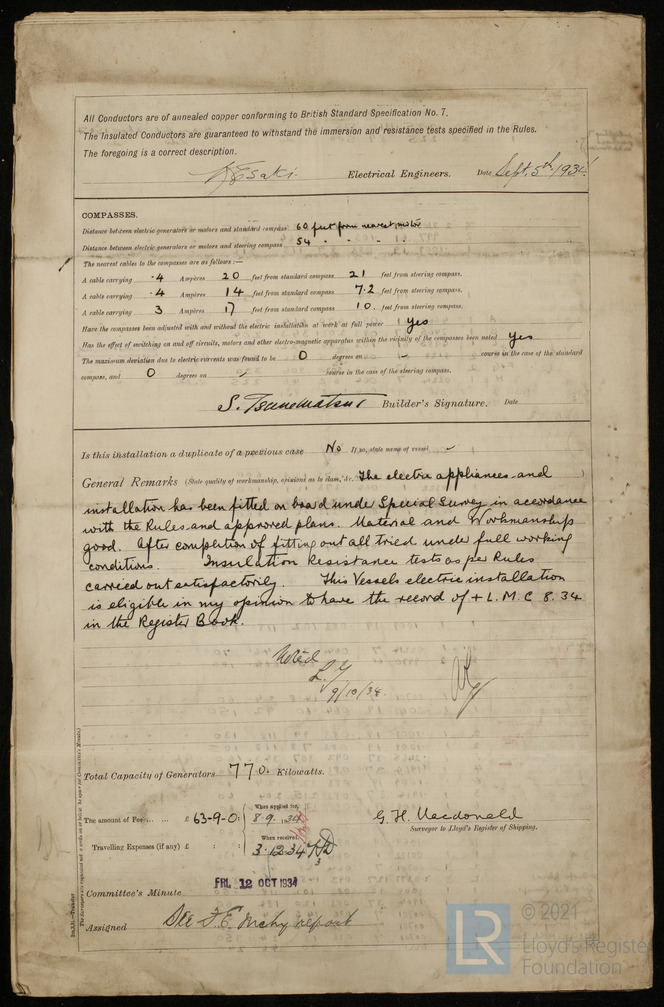 All Conductors are of annealed copper conforming to British Standard Specification No. 7.
The Insulated Conductors are guaranteed to withstand the immersion and resistance tests specified in the Rules.
The foregoing is a correct description.
Esaki Electrical Engineers. Date Sept. 5th 1934
COMPASSES.
Distance between electric generators or motors and standard compass 60 feet from nearest motor
Distance between electric generators or motors and steering compass 54 " " "
The nearest cables to the compasses are as follows :—
A cable carrying .4 Ampères 20 feet from standard compass 21 feet from steering compass.
A cable carrying .4 Ampères 14 feet from standard compass 7.2 feet from steering compass.
A cable carrying 3 Ampères 17 feet from standard compass 10. feet from steering compass.
Have the compasses been adjusted with and without the electric installation at work at full power Yes
Has the effect of switching on and off circuits, motors and other electro-magnetic apparatus within the vicinity of the compasses been noted Yes
The maximum deviation due to electric currents was found to be 0 degrees on - course in the case of the standard
compass, and 0 degrees on course in the case of the steering compass.
S. Tsunematsu Builder's Signature. Date
Is this installation a duplicate of a previous case No If so, state name of vessel
General Remarks (State quality of workmanship, opinions as to class, &c. The electric appliances and )
installation has been fitted on board under Special Survey in accordance
with the Rules and approved plans. Material and Workmanship
good. After completion of fitting out all tried under full working
conditions. Insulation Resistance tests as per Rules
carried out satisfactorily. This Vessels electric installation
is eligible in my opinion to have the record of + L.M.C 8.34
in the Register Book.
Noted
L.Y
9/10/34.
Total Capacity of Generators 770. Kilowatts.
The amount of Fee ... ... £ 63-9-0: When applied for, 8.9.34
Travelling Expenses (if any) £ : : When received, 3.12.34
G. H. Macdonald
Surveyor to Lloyd's Register of Shipping.
Committee's Minute FRI. 12 OCT 1934
Assigned See F.E. mchy report
© 2021
LR
Lloyd's Register
Foundation